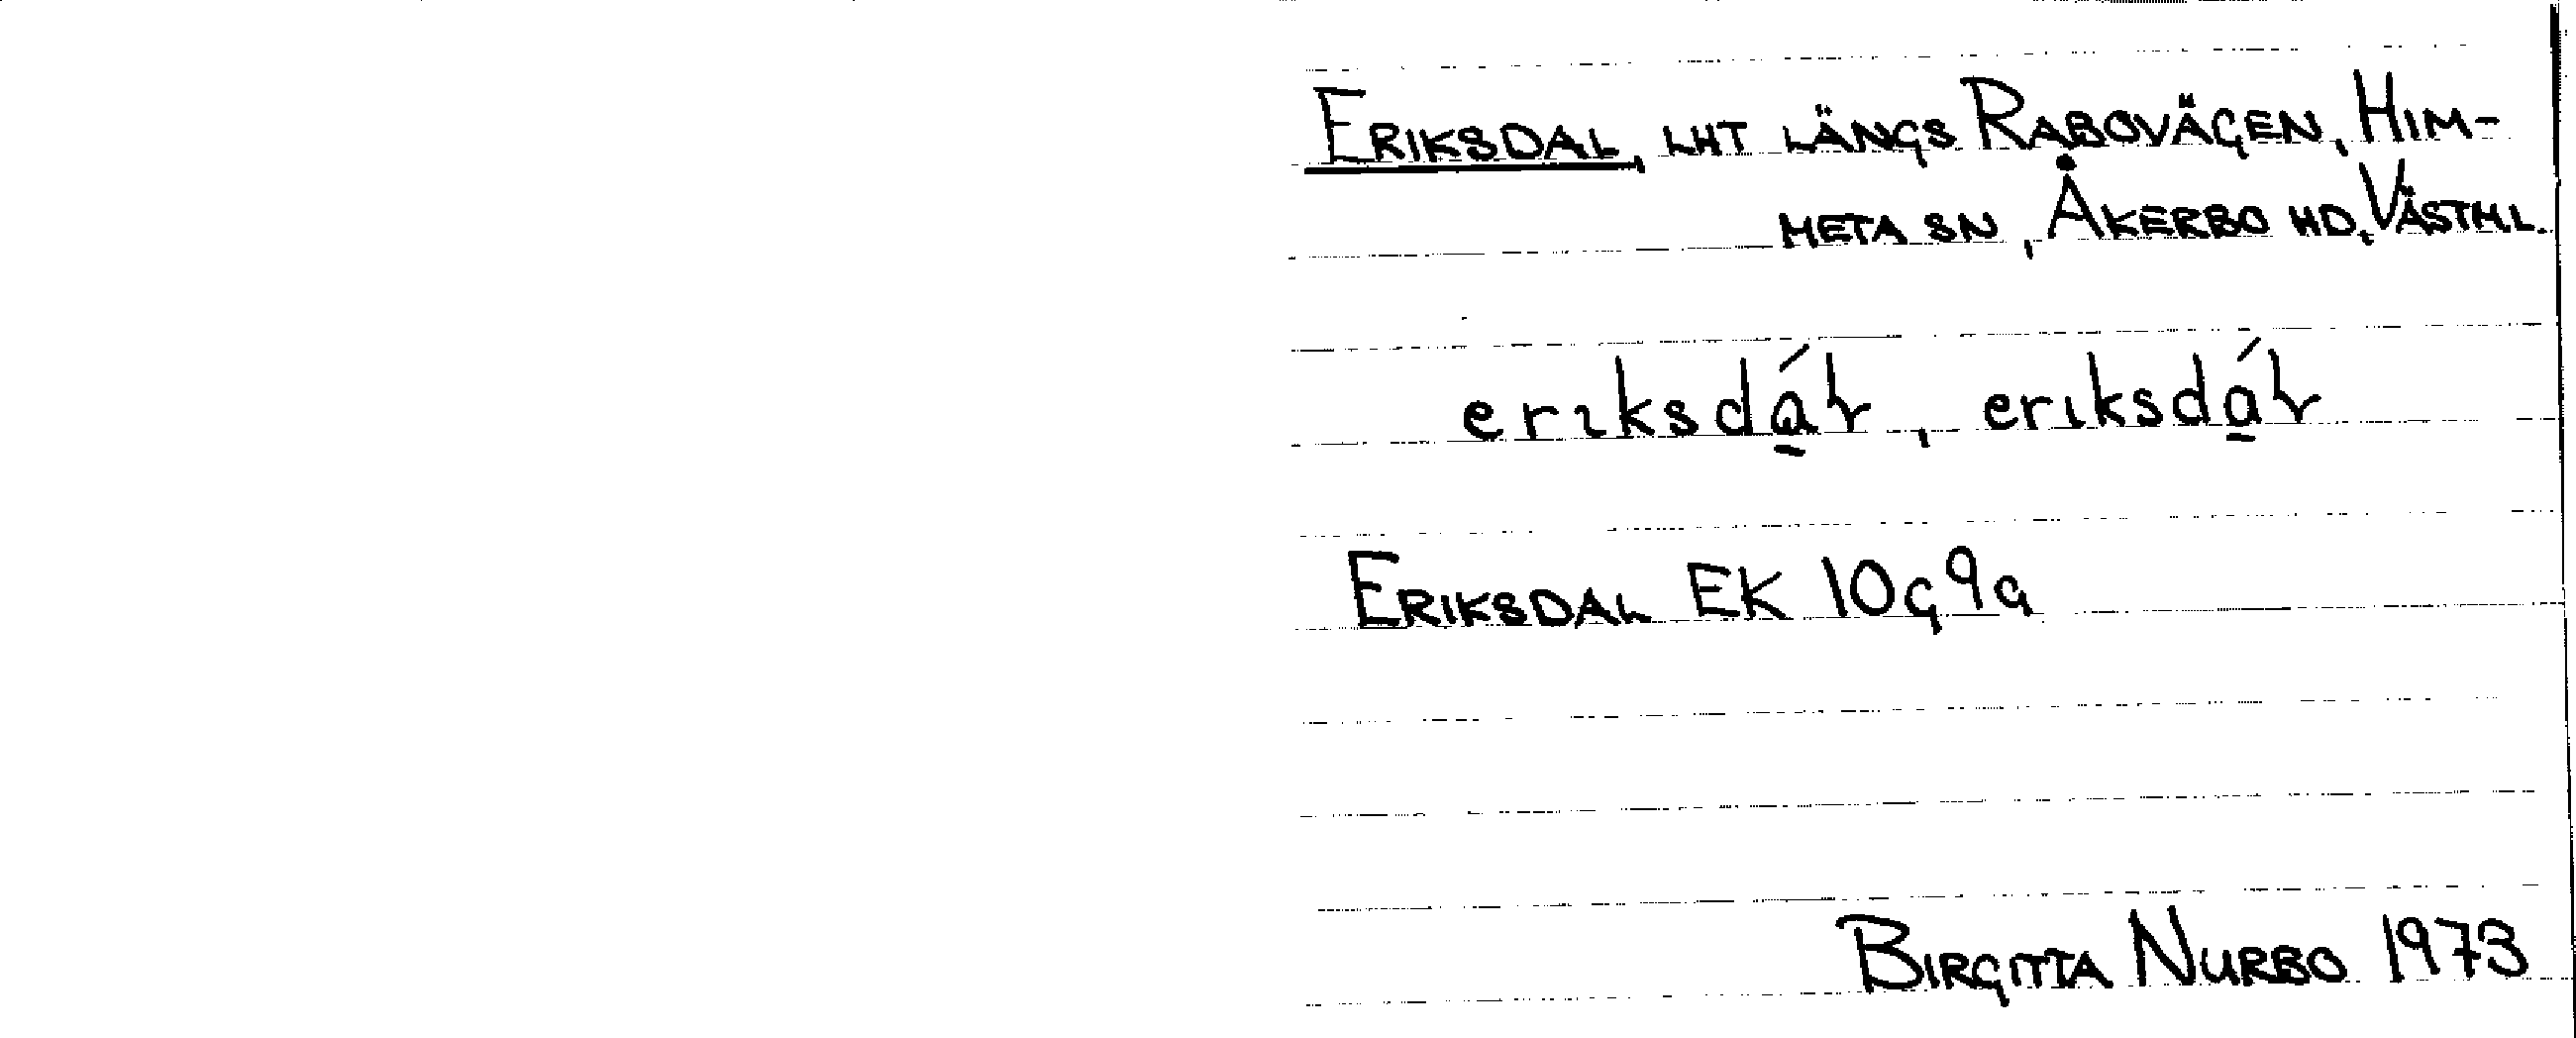 ERIKSDAL, LHT LÄNGS RABOVÄGEN, HIM-
META SN, ÅKERBO HD, VÄSTML.
erıksdá̱ɫ, erıksdá̱ɫ
ERIKSDAL EK 10G9a
BIRGITTA NURBO 1973